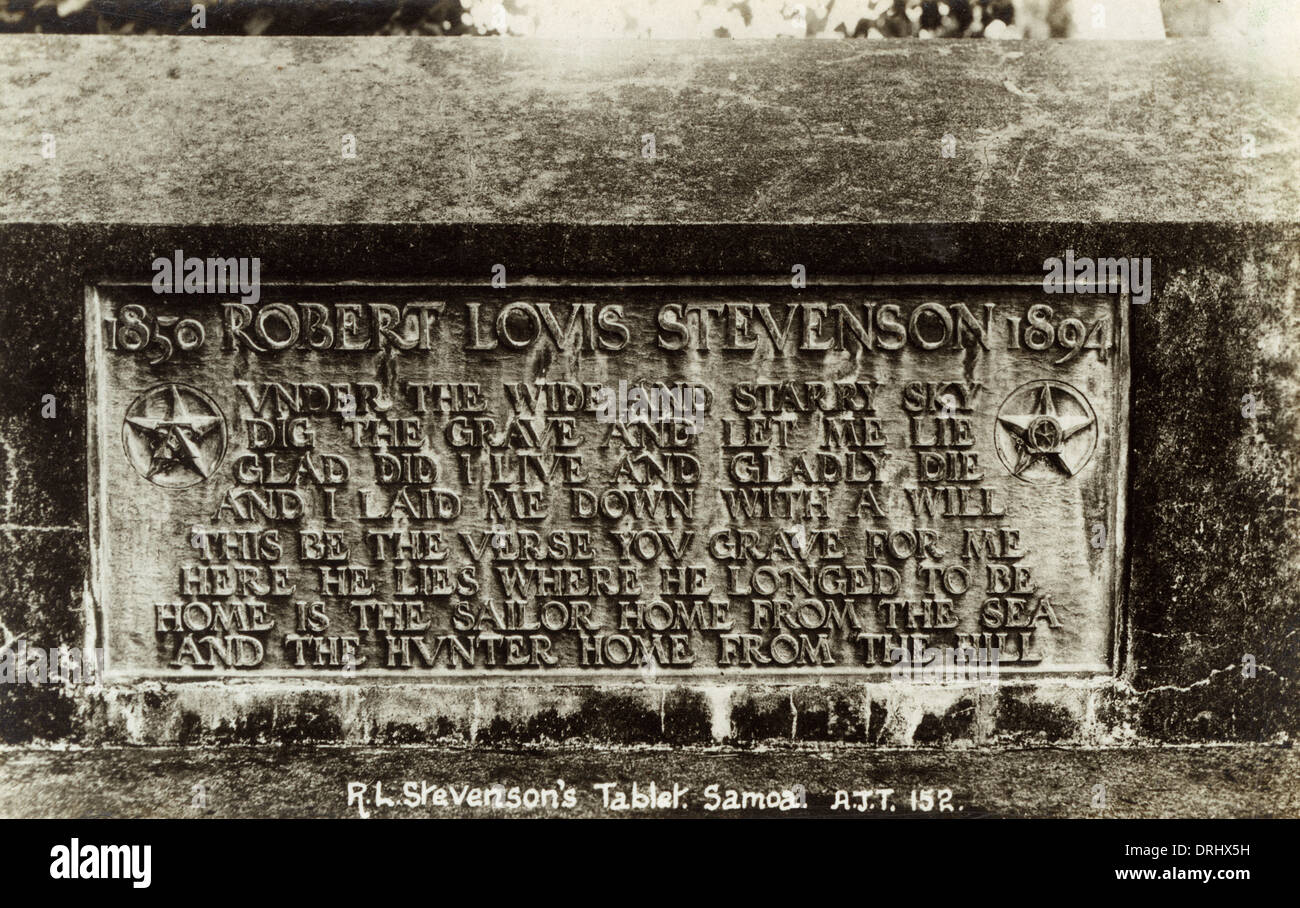 1850 ROBERT LOVIS STEVENSON 1894
VNDER THE WIDE AND STARRY SKY
DIG THE GRAVE AND LET ME LIE
GLAD DID I LIVE AND GLADLY DIE
AND I LAID ME DOWN WITH A WILL
THIS BE THE VERSE YOV GRAVE FOR ME
HERE HE LIES WHERE HE LONGED TO BE
HOME IS THE SAILOR HOME FROM THE SEA
AND THE HVNTER HOME FROM THE HILL
R.L.Stevenson's Tablet. Samoa. A.J.T. 152.
alamy
Image ID: DRHX5H
www.alamy.com